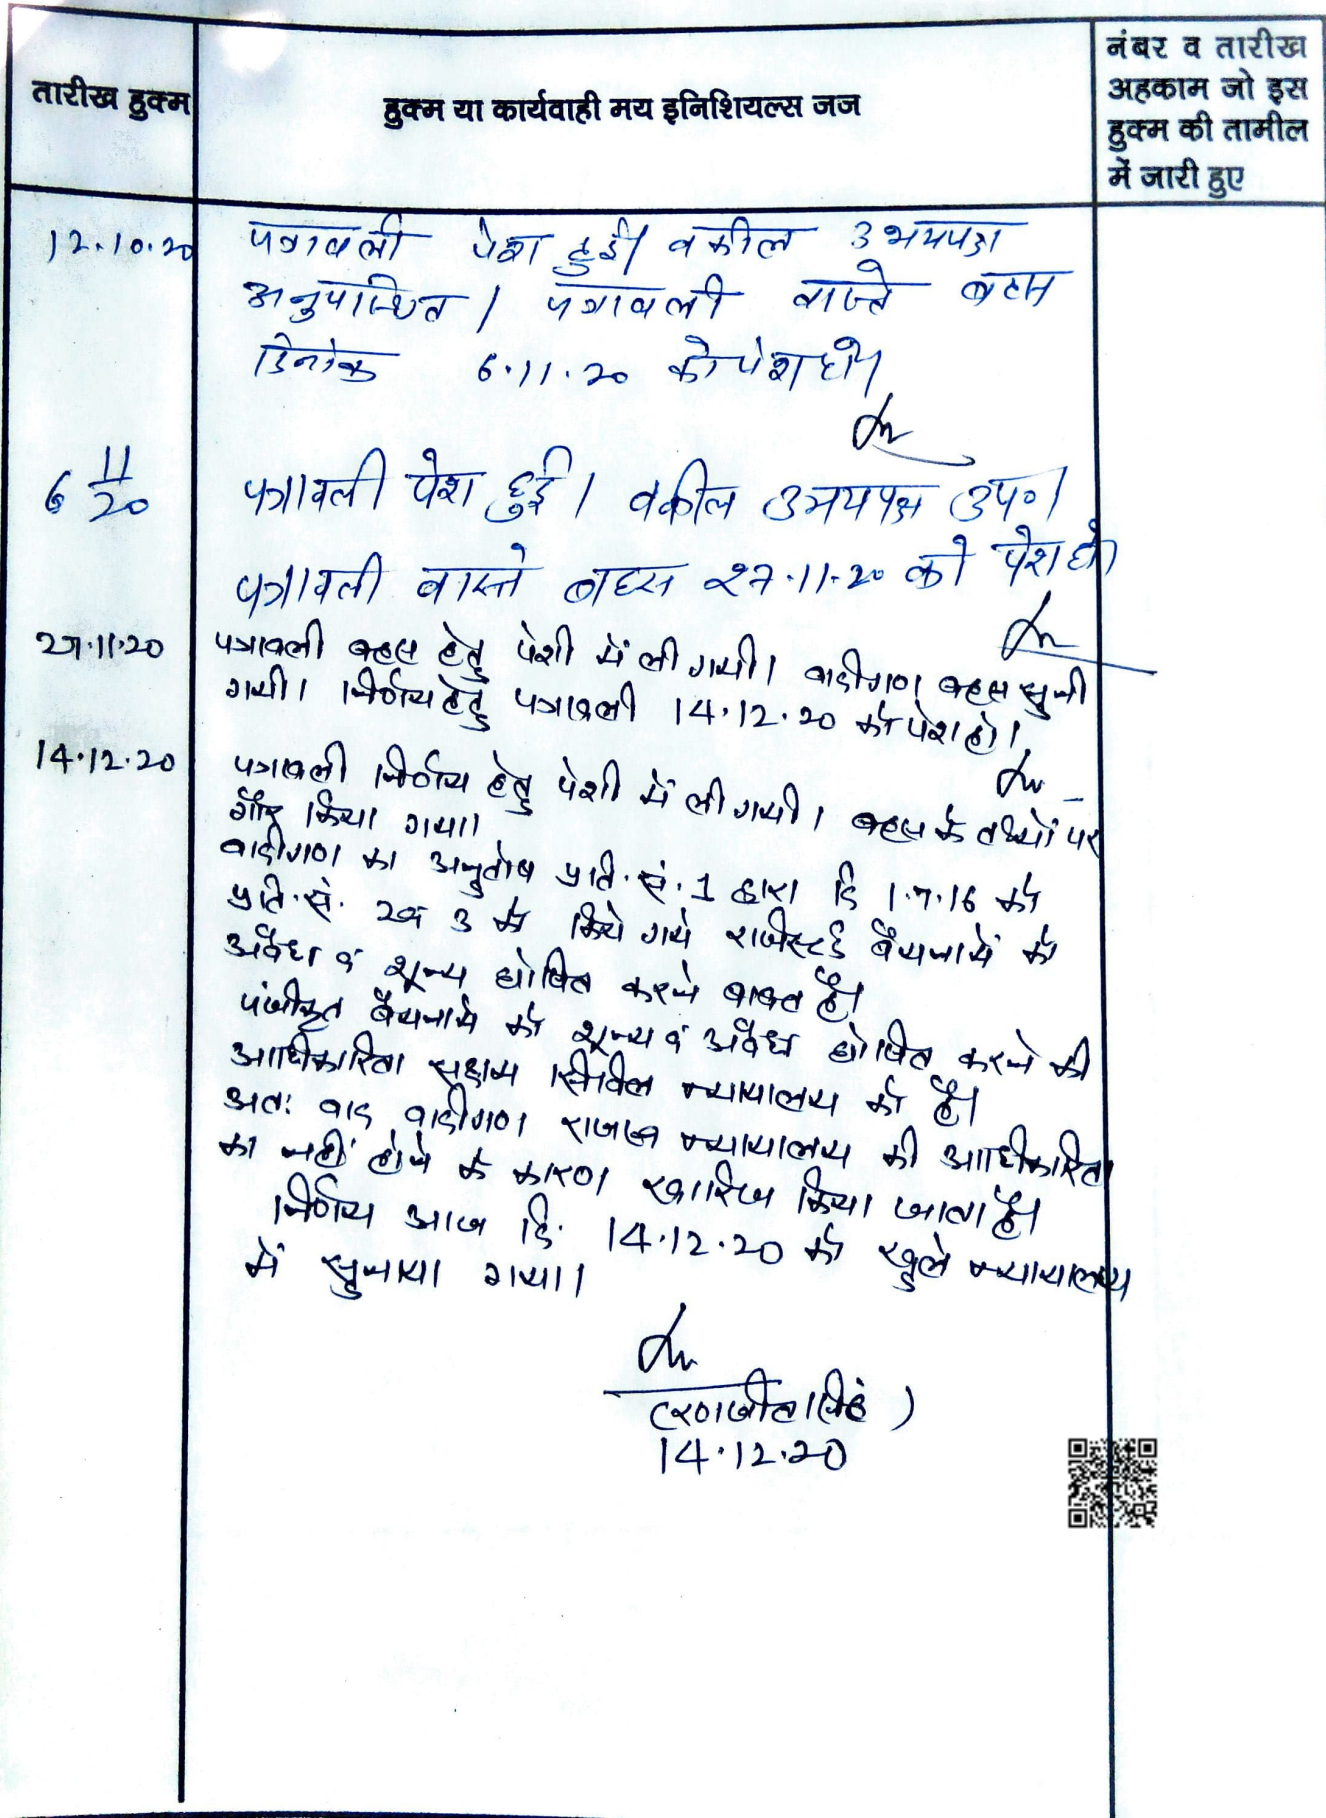 तारीख हुक्म
हुक्म या कार्यवाही मय इनिशियल्स जज
नंबर व तारीख
अहकाम जो इस
हुक्म की तामील
में जारी हुए
12.10.20 पत्रावली पेश हुई। वकील उभयपक्ष
अनुपस्थित। पत्रावली वास्ते बहस
दिनांक 6.11.20 को पेश हो।
6 11/20 पत्रावली पेश हुई। वकील उभयपक्ष उप०।
पत्रावली वास्ते बहस 27.11.20 को पेश हो।
27.11.20 पत्रावली बहस हेतु पेशी में ली गयी। वादीगण बहस सुनी
गयी। निर्णय हेतु पत्रावली 14.12.20 को पेश हो।
14.12.20 पत्रावली निर्णय हेतु पेशी में ली गयी। बहस के तथ्यों पर
गौर किया गया।
वादीगण का अनुतोष प्रति. सं. 1 द्वारा दि 1.7.16 को
प्रति. सं. 2 व 3 को किये गये राजीस्टर्ड बैयनामें को
अवैध व शून्य घोषित करने बाबत है।
पंजीकृत बैयनामे को शून्य व अवैध घोषित करने की
आधिकारिता सक्षम सिविल न्यायालय को है।
अतः वाद वादीगण राजस्व न्यायालय की आधिकारिता
का नहीं होने के कारण खारिज किया जाता है।
निर्णय आज दि. 14.12.20 को खुले न्यायालय
में सुनाया गया।
(रणजीत सिंह)
14.12.20